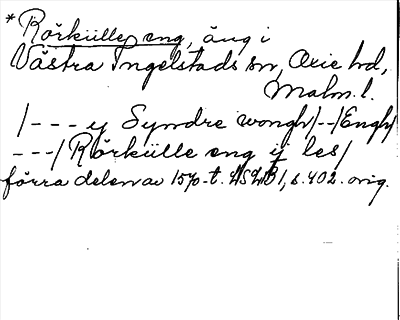 *Rörkülle eng, äng i
Västra Ingelstads sn, Oxie hd,
Malm. l.
/--- y Syndre wongh/--/Engh/
---/Rörkülle eng ij les/
förra delen av 1570-t. LSLB 1, s. 402. orig.